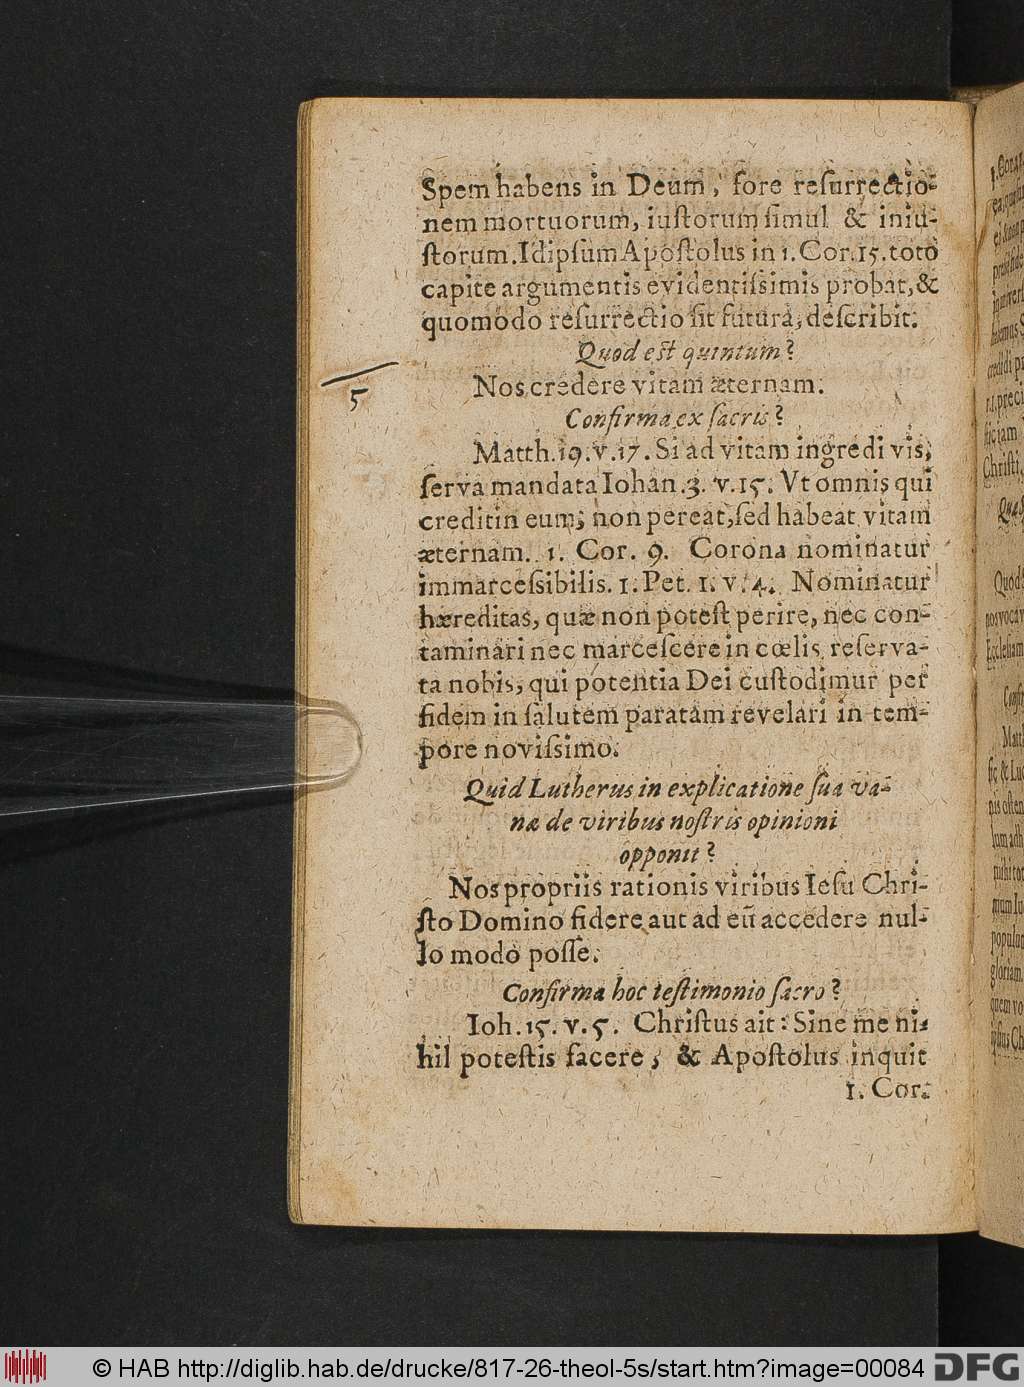 Spem habens in Deum, fore reſurrectio-
nem mortuorum, iuſtorum ſimul & iniu-
ſtorum. Idipſum Apoſtolus in 1. Cor. 15. toto
capite argumentis evidentiſsimis probat, &
quomodo reſurrectio ſit futura, deſcribit.
Quod eſt quintum?
5
Nos credere vitam æternam.
Confirma ex ſacris?
Matth. 19. v. 17. Si ad vitam ingredi vis,
ſerva mandata Iohan. 3. v. 15. Vt omnis qui
credit in eum, non pereat, ſed habeat vitam
æternam. 1. Cor. 9. Corona nominatur
immarceſsibilis. 1. Pet. 1. v. 4. Nominatur
hæreditas, quæ non poteſt perire, nec con-
taminari nec marceſcere in cœlis reſerva-
ta nobis, qui potentia Dei cuſtodimur per
fidem in ſalutem paratam revelari in tem-
pore noviſsimo.
Quid Lutherus in explicatione ſua va-
næ de viribus noſtris opinioni
opponit?
Nos propriis rationis viribus Ieſu Chri-
ſto Domino fidere aut ad eū accedere nul-
lo modo poſſe.
Confirma hoc teſtimonio ſacro?
Ioh. 15. v. 5. Chriſtus ait: Sine me ni-
hil poteſtis facere, & Apoſtolus inquit
1. Cor.
© HAB http://diglib.hab.de/drucke/817-26-theol-5s/start.htm?image=00084
DFG